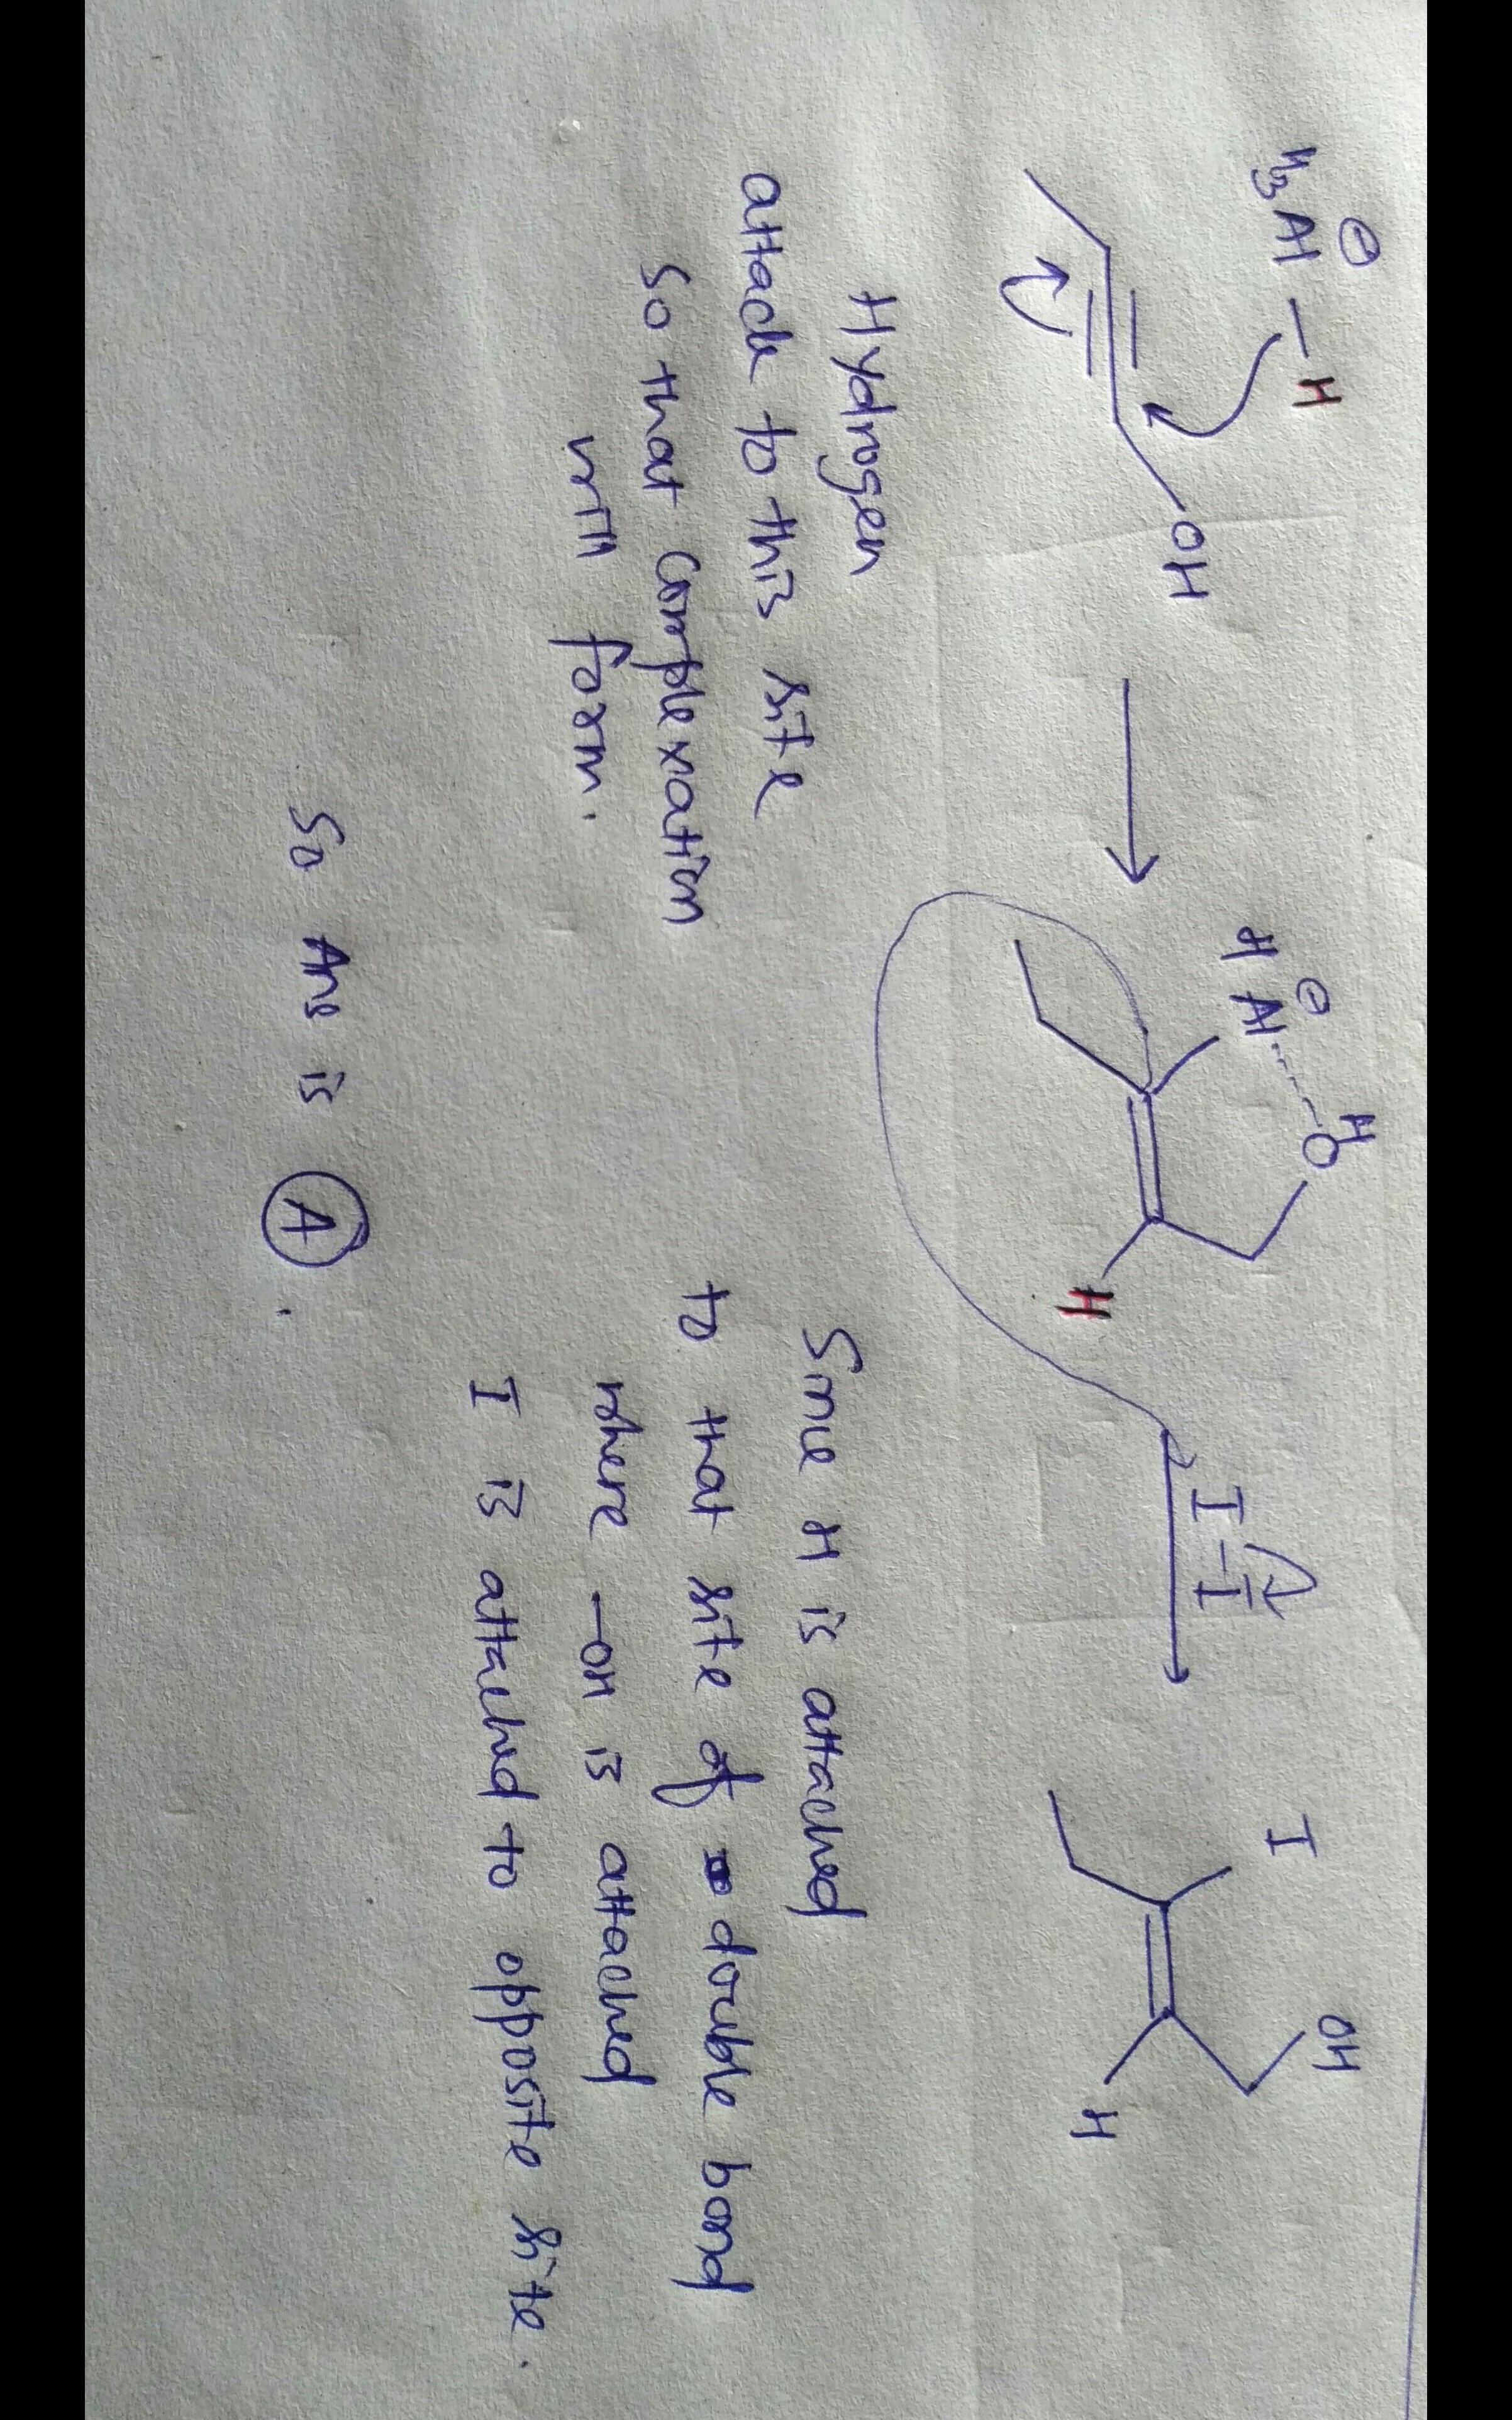 H₃Al⊖ — H
OH
H Al⊖ ---- O H
H
I – I
I
OH
H
Hydrogen
attack to this site
so that complexation
will form.
Since H is attached
to that site of double bond
where –OH is attached
I is attached to opposite site.
So Ans is A.